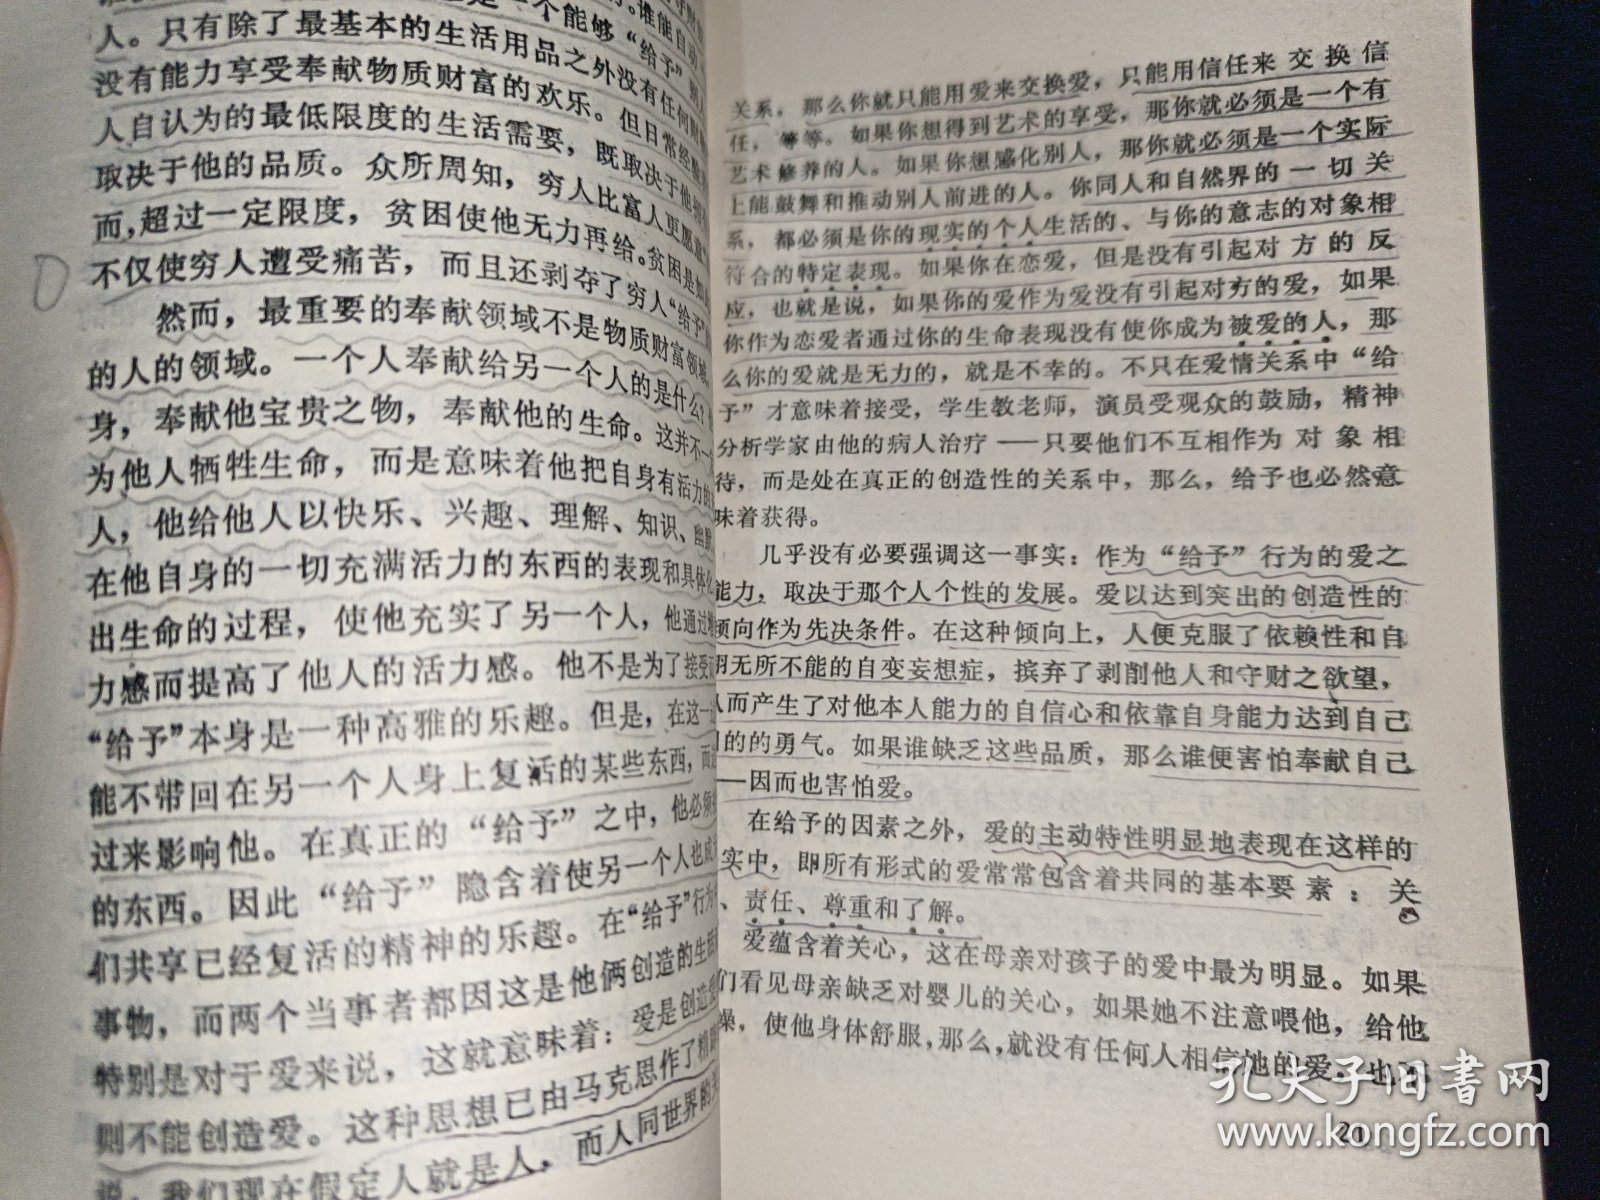 是一个能够“给予”别人
人。只有除了最基本的生活用品之外没有任何财
没有能力享受奉献物质财富的欢乐。但日常经验
人自认为的最低限度的生活需要，既取决于他
取决于他的品质。众所周知，穷人比富人更愿
而，超过一定限度，贫困使他无力再给。贫困是如
不仅使穷人遭受痛苦，而且还剥夺了穷人“给予”
然而，最重要的奉献领域不是物质财富领域
的人的领域。一个人奉献给另一个人的是什么？
身，奉献他宝贵之物，奉献他的生命。这并不一
为他人牺牲生命，而是意味着他把自身有活力的
人，他给他人以快乐、兴趣、理解、知识、幽默
在他自身的一切充满活力的东西的表现和具体化
出生命的过程，使他充实了另一个人，他通过
力感而提高了他人的活力感。他不是为了接受
“给予”本身是一种高雅的乐趣。但是，在这一
能不带回在另一个人身上复活的某些东西，而
过来影响他。在真正的“给予”之中，他必须
的东西。因此“给予”隐含着使另一个人也成
们共享已经复活的精神的乐趣。在“给予”行为
事物，而两个当事者都因这是他俩创造的生
特别是对于爱来说，这就意味着：爱是创造
则不能创造爱。这种思想已由马克思作了精
说：我们现在假定人就是人，而人同世界的关
关系，那么你就只能用爱来交换爱，只能用信任来交换信
任，等等。如果你想得到艺术的享受，那你就必须是一个有
艺术修养的人。如果你想感化别人，那你就必须是一个实际
上能鼓舞和推动别人前进的人。你同人和自然界的一切关
系，都必须是你的现实的个人生活的、与你的意志的对象相
符合的特定表现。如果你在恋爱，但是没有引起对方的反
应，也就是说，如果你的爱作为爱没有引起对方的爱，如果
你作为恋爱者通过你的生命表现没有使你成为被爱的人，那
么你的爱就是无力的，就是不幸的。不只在爱情关系中“给
予”才意味着接受，学生教老师，演员受观众的鼓励，精神
分析学家由他的病人治疗——只要他们不互相作为对象相
待，而是处在真正的创造性的关系中，那么，给予也必然意
味着获得。
几乎没有必要强调这一事实：作为“给予”行为的爱之
能力，取决于那个人个性的发展。爱以达到突出的创造性的
倾向作为先决条件。在这种倾向上，人便克服了依赖性和自
无所不能的自变妄想症，摈弃了剥削他人和守财之欲望，
从而产生了对他本人能力的自信心和依靠自身能力达到自己
目的的勇气。如果谁缺乏这些品质，那么谁便害怕奉献自己
——因而也害怕爱。
在给予的因素之外，爱的主动特性明显地表现在这样的
实中，即所有形式的爱常常包含着共同的基本要素：关
、责任、尊重和了解。
爱蕴含着关心，这在母亲对孩子的爱中最为明显。如果
们看见母亲缺乏对婴儿的关心，如果她不注意喂他，给他
澡，使他身体舒服，那么，就没有任何人相信她的爱，也
21
孔夫子旧书网
www.kongfz.com